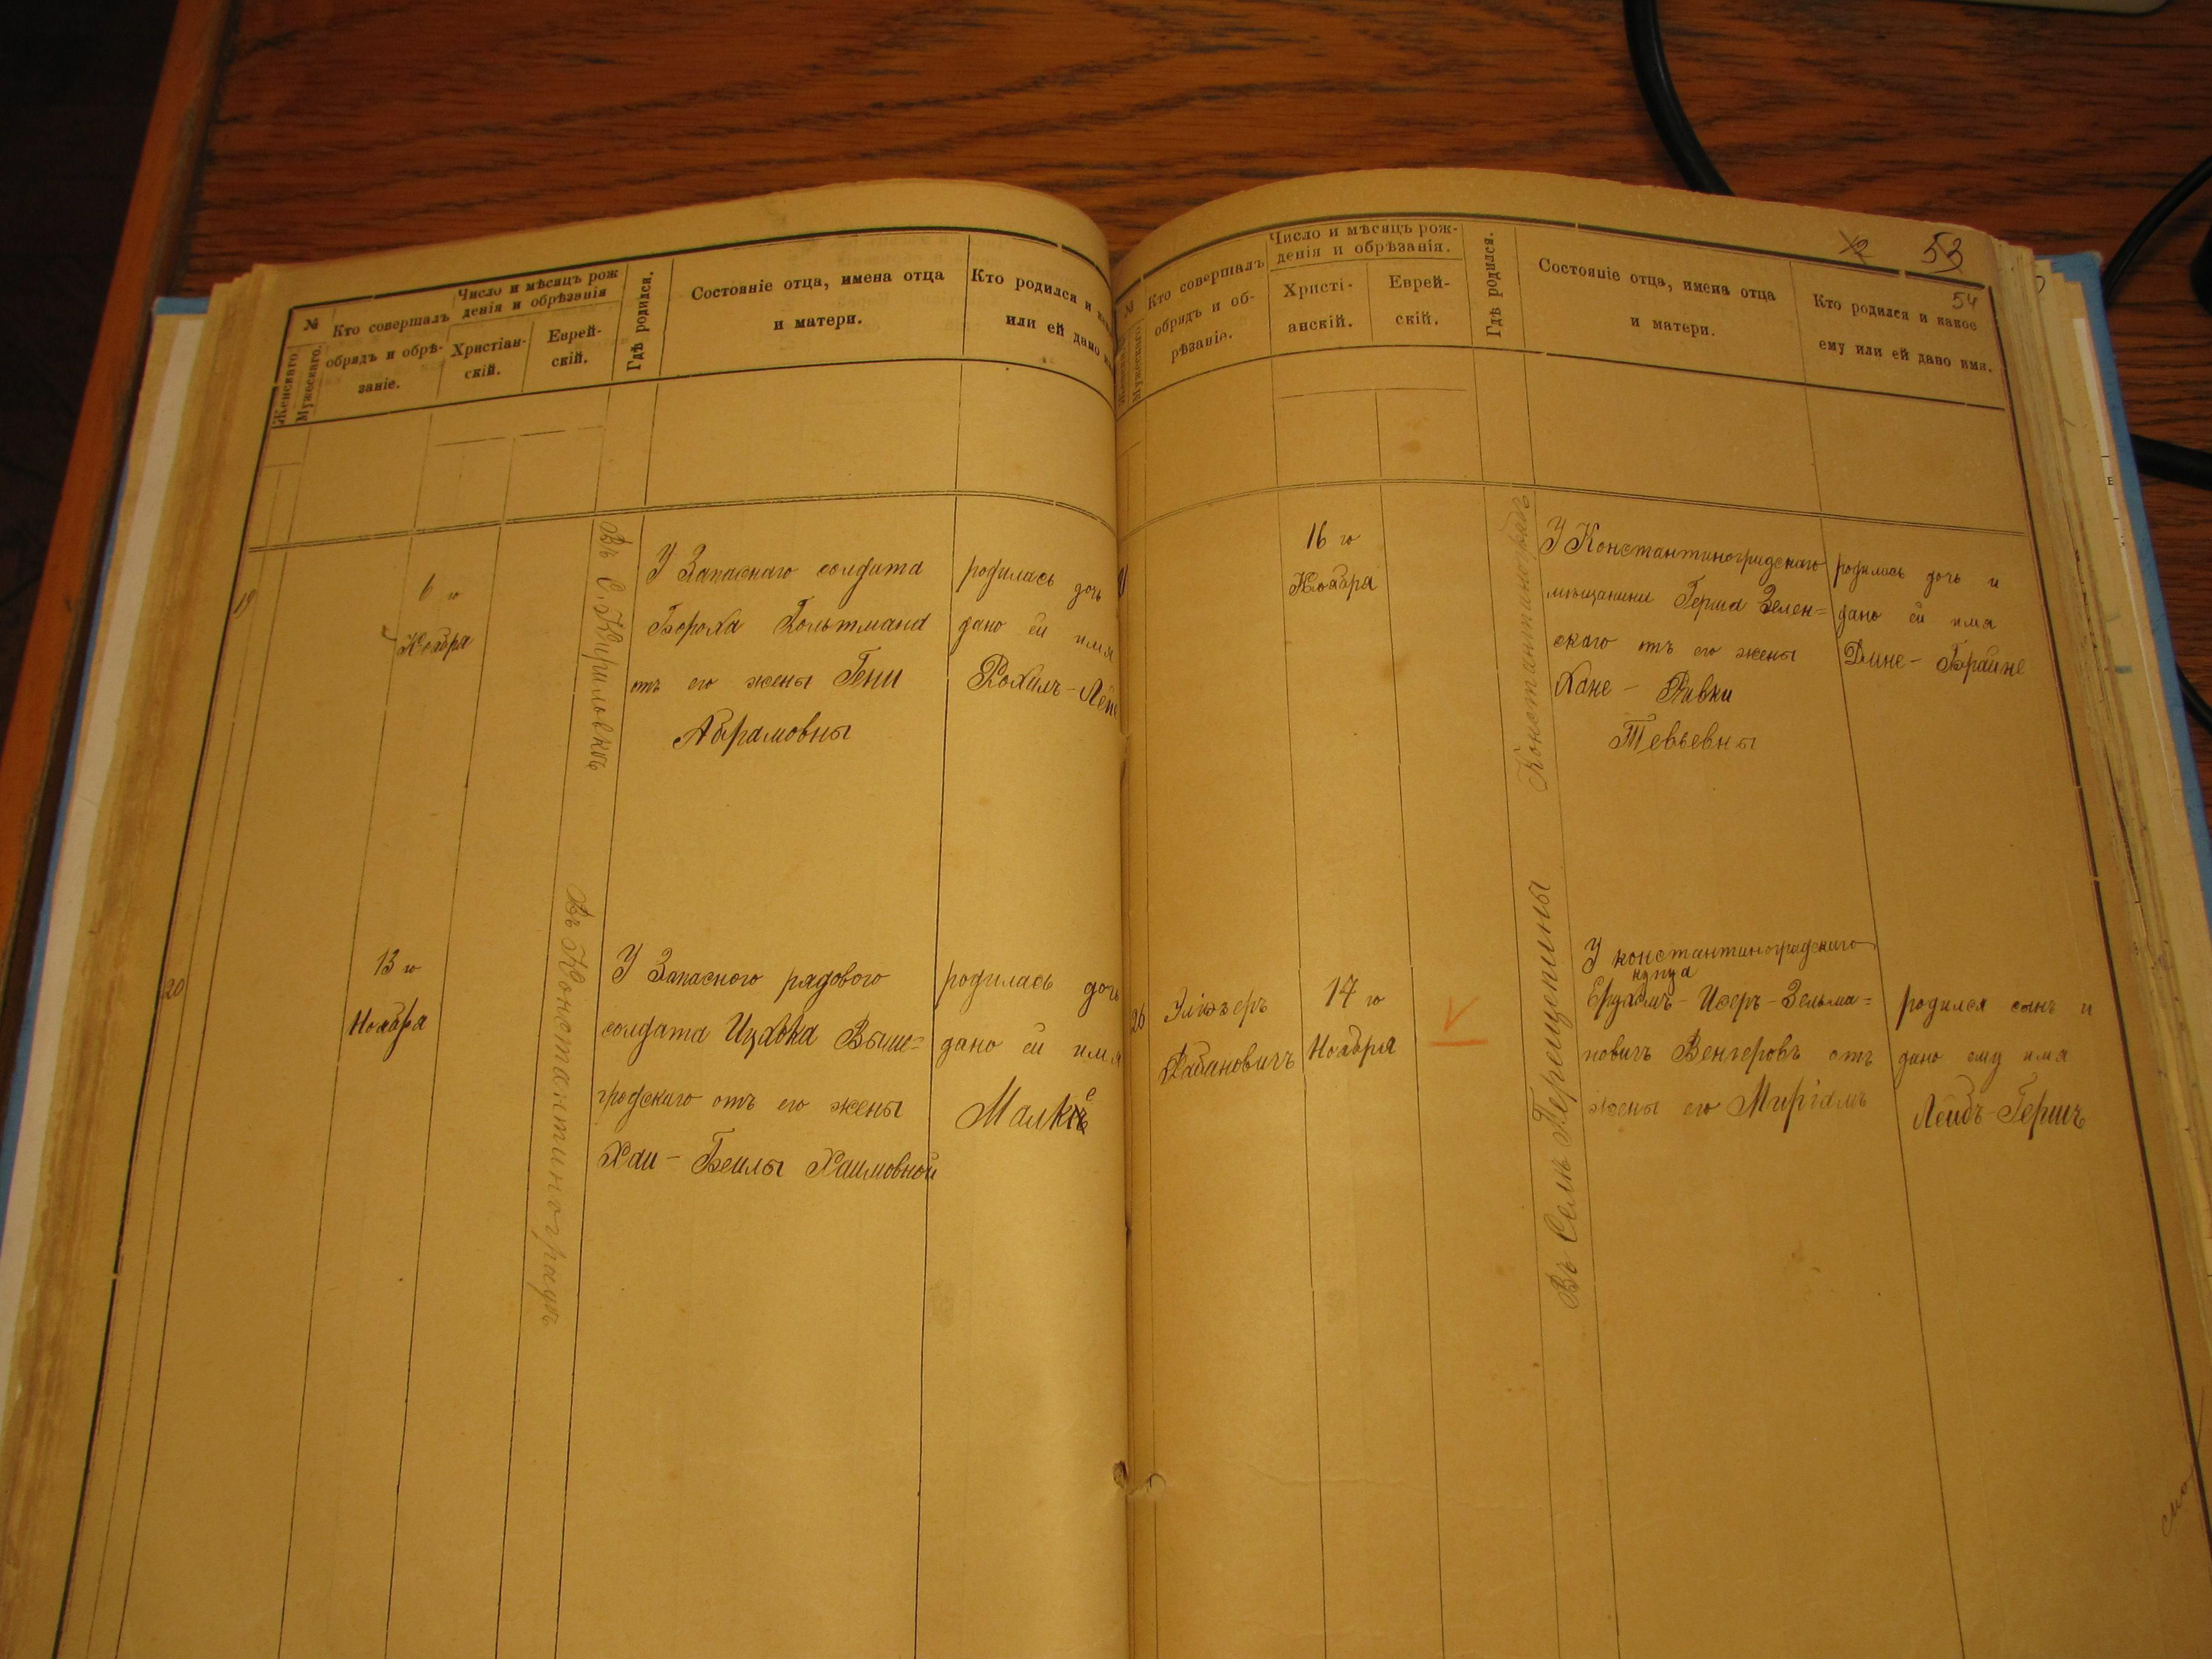 №
Женскаго.
Мужескаго.
Кто совершалъ
обрядъ и обрѣ-
заніе.
Число и мѣсяцъ рож
денія и обрѣзанія
Христіан-
скій.
Еврей-
скій.
Гдѣ родился.
Состояніе отца, имена отца
и матери.
Кто родился и
или ей дано
19
6 го
Ноября
Въ С. Кириловкѣ
У Запаснаго солдата
Бороха Гольтмана
отъ его жены Бни
Абрамовны
родилась дочь
дано ей имя
Рохиль-Лѣне
20
13 го
Ноября
Въ Константиноградѣ
У Запасного рядового
солдата Ицхока Выше=
гродскаго отъ его жены
Хаи - Бейлы Хаимовной
родилась дочь
дано ей имя
Малке
№
Женскаго
Мужескаго
Кто совершалъ
обрядъ и об-
рѣзаніе.
Число и мѣсяцъ рож-
денія и обрѣзанія.
Христі-
анскій.
Еврей-
скій.
Гдѣ родился.
Состояніе отца, имена отца
и матери.
53
54
Кто родился и какое
ему или ей дано имя.
16 го
Ноября
Константиноградъ
У Константиноградскаго
мѣщанина Герша Зелен=
скаго отъ его жены
Хане - Ривки
Тевьевны
родилась дочь и
дано ей имя
Дине - Брайне
26
Эліэзеръ
Рабиновичъ
17 го
Ноября
Въ Селѣ Перещепины
У константиноградскаго
купца
Ерухамъ - Исеръ - Зельма=
новичъ Венгеровъ отъ
жены его Миріамъ
родился сынъ и
дано ему имя
Лейбъ-Гершъ